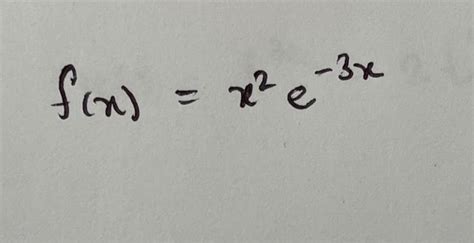 f(x) = x² e⁻³ˣ